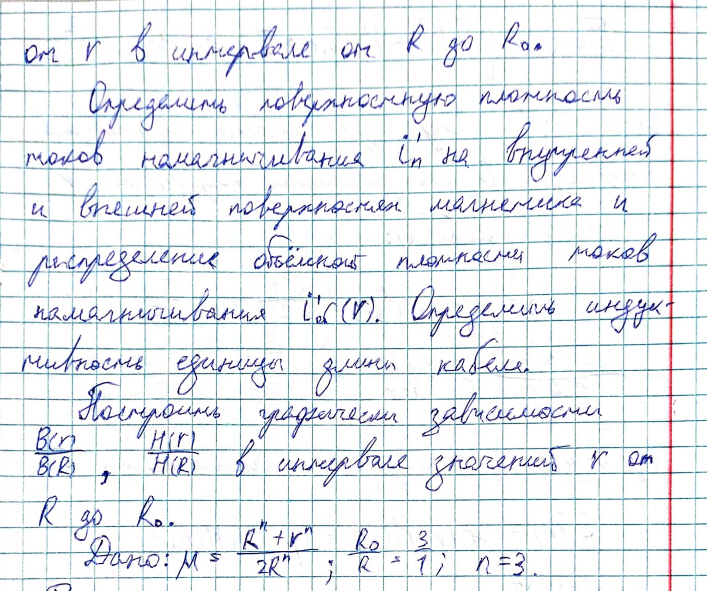 от r в интервале от R до R₀.
Определить поверхностную плотность
токов намагничивания i'ₙ на внутренней
и внешней поверхностях магнетика и
распределение объёмной плотности токов
намагничивания i'об(r). Определить индук-
тивность единицы длины кабеля.
Построить графически зависимости
B(r)/B(R), H(r)/H(R) в интервале значений r от
R до R₀.
Дано: μ = (Rⁿ+rⁿ)/2Rⁿ; R₀/R = 3/1; n=3.